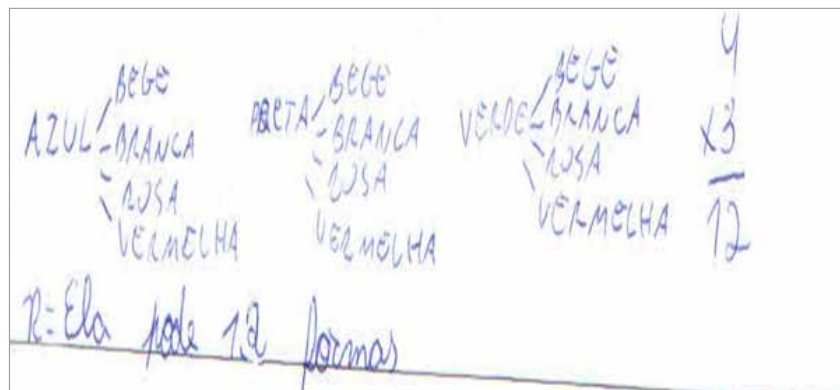 AZUL BEGE
BRANCA
ROSA
VERMELHA
PRETA BEGE
BRANCA
ROSA
VERMELHA
VERDE BEGE
BRANCA
ROSA
VERMELHA
4
x3
12
R= Ela pode 12 formas